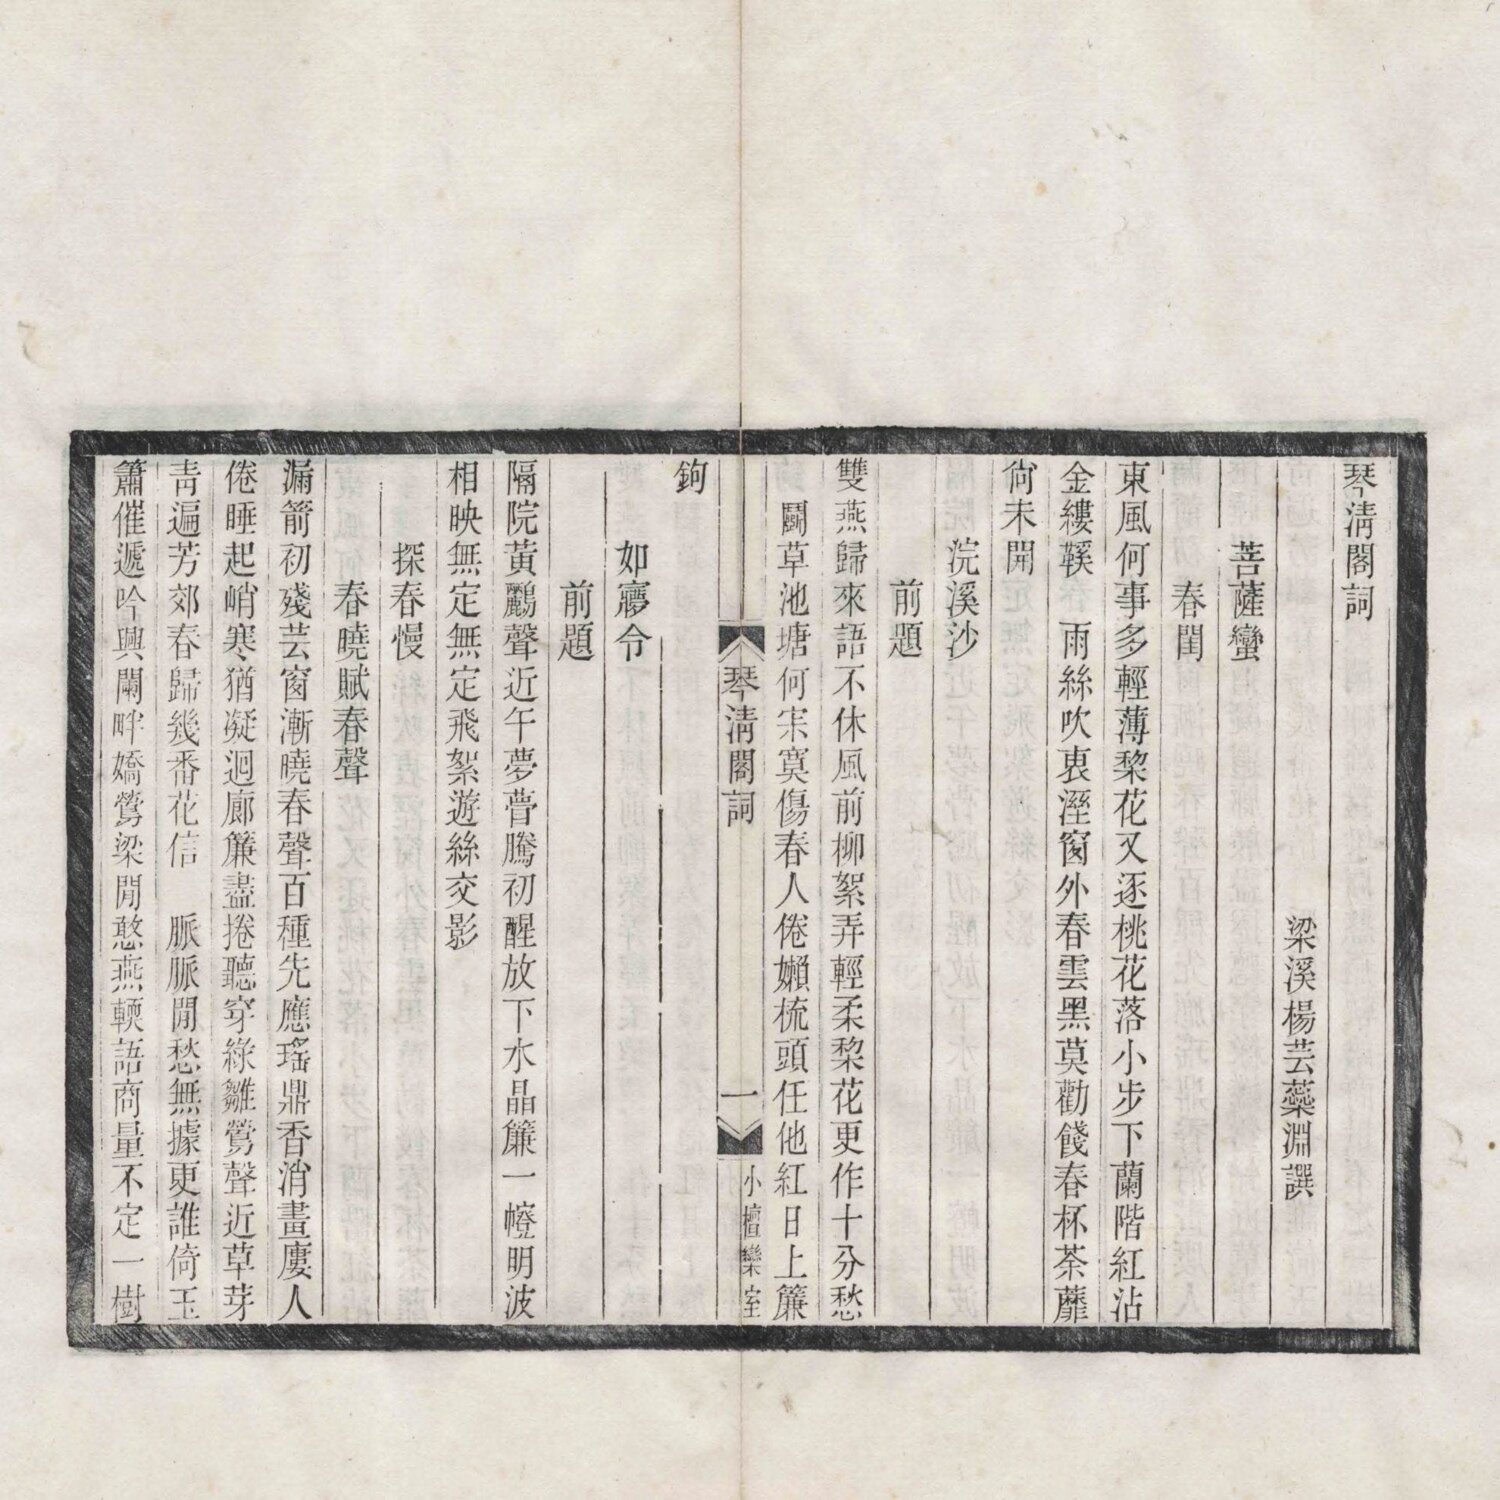 琴淸閣詞
梁溪楊芸蘂淵譔
菩薩蠻
春閨
東風何事多輕薄棃花又逐桃花落小步下蘭階紅沾
金縷鞵　雨絲吹裏溼窗外春雲黑莫勸餞春杯荼蘼
尙未開
浣溪沙
前題
雙燕歸來語不休風前柳絮弄輕柔棃花更作十分愁
鬭草池塘何宋寞傷春人倦嬾梳頭任他紅日上簾
鉤
琴淸閣詞
一
小檀欒室
如㝱令
前題
隔院黃鸝聲近午夢瞢騰初醒放下水晶簾一㡧明波
相映無定無定飛絮遊絲交影
探春慢
春曉賦春聲
漏箭初殘芸窗漸曉春聲百種先應瑤鼎香消畫廔人
倦睡起峭寒猶凝迴廊簾盡捲聽穿綠雛鶯聲近草芽
靑遍芳郊春歸幾番花信　脈脈閒愁無據更誰倚玉
簫催遞吟興闌畔嬌鶯梁閒憨燕輭語商量不定一樹